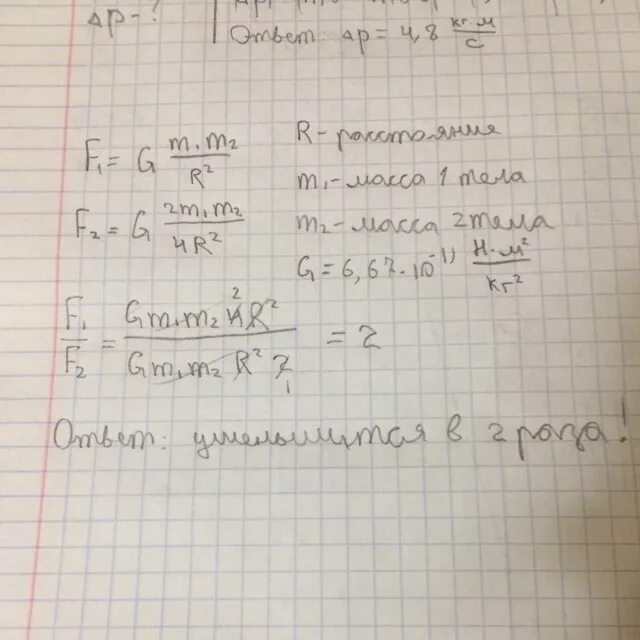 Δp - ?
Ответ: Δp = 4,8 кг·м/с
F₁ = G m₁m₂/R²
R - расстояние
m₁ - масса 1 тела
F₂ = G 2m₁m₂/4R²
m₂ - масса 2 тела
G = 6,67·10⁻¹¹ Н·м²/кг²
F₁/F₂ = Gm₁m₂4R²/Gm₁m₂R²2 = 2
2
1
Ответ: уменьшится в 2 раза!